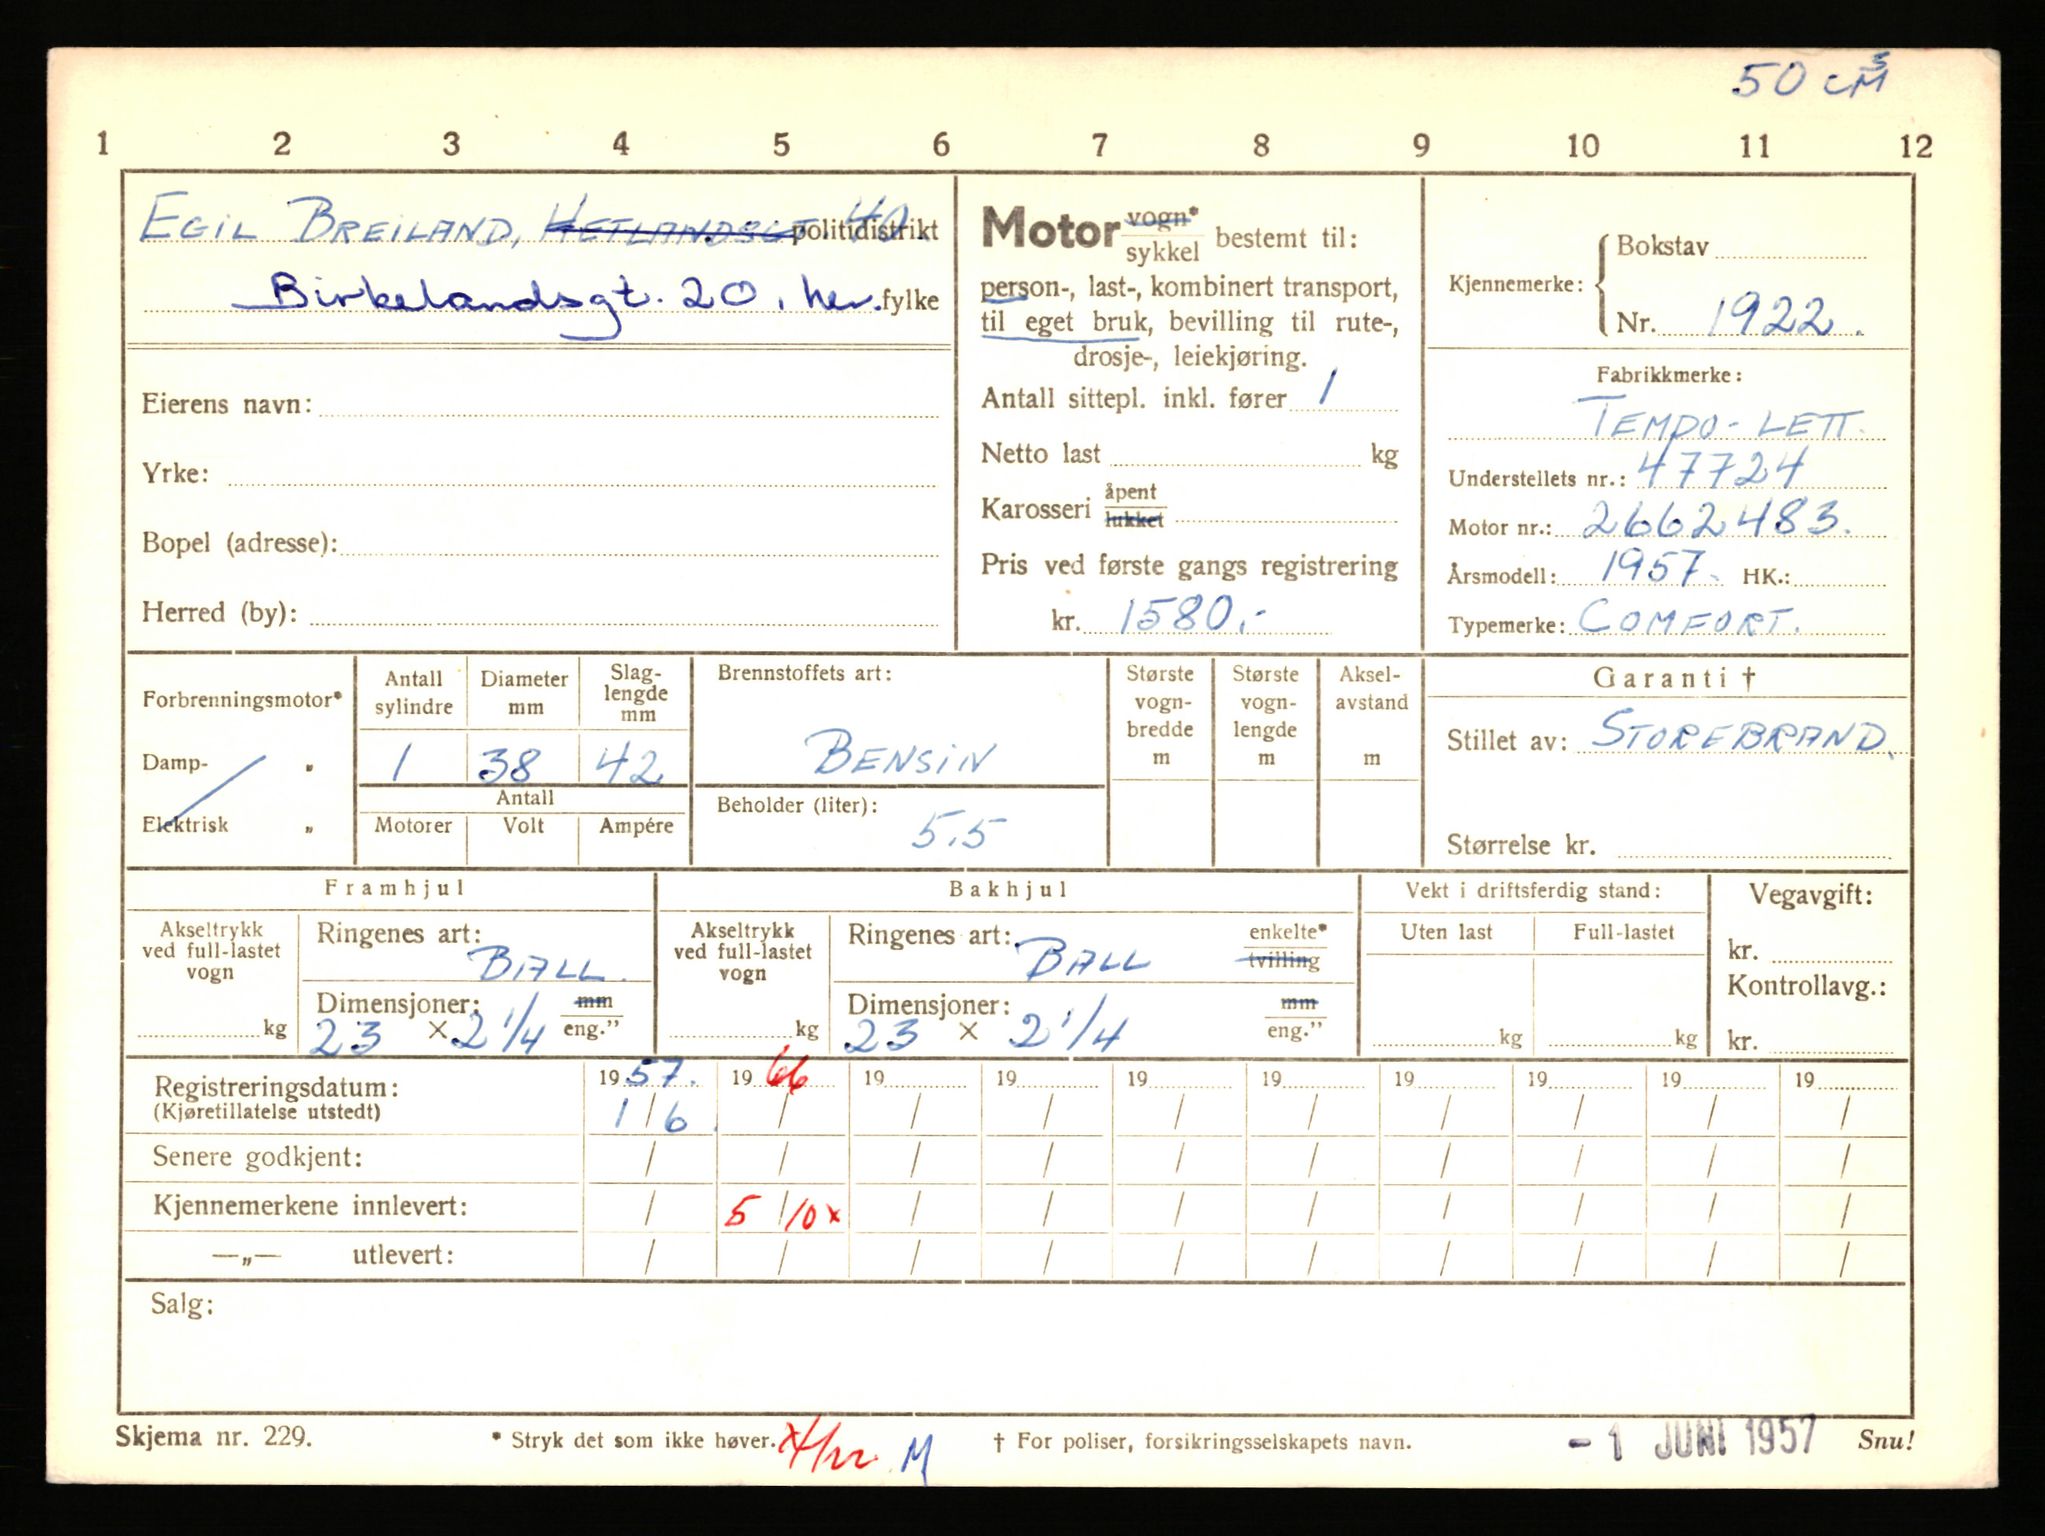 50 cm³
1 2 3 4 5 6 7 8 9 10 11 12
EGIL BREILAND, HETLANDSGT 40. politidistrikt
Birkelandsgt. 20, her. fylke
Eierens navn:
Yrke:
Bopel (adresse):
Herred (by):
Motor vogn* / sykkel bestemt til:
person-, last-, kombinert transport,
til eget bruk, bevilling til rute-,
drosje-, leiekjøring.
Antall sittepl. inkl. fører 1
Netto last kg
Karosseri åpent / lukket
Pris ved første gangs registrering
kr. 1580,-
Kjennemerke: Bokstav
Nr. 1922.
Fabrikkmerke:
TEMPO-LETT.
Understellets nr.: 47724
Motor nr.: 2662483.
Årsmodell: 1957. HK.:
Typemerke: COMFORT.
Forbrenningsmotor*
Damp- „
Elektrisk „
Antall sylindre
1
Diameter mm
38
Slag-
lengde
mm
42
Antall
Motorer Volt Ampére
Brennstoffets art:
BENSIN
Beholder (liter):
5,5
Største
vogn-
bredde
m
Største
vogn-
lengde
m
Aksel-
avstand
m
Garanti †
Stillet av: STOREBRAND.
Størrelse kr.
Framhjul
Akseltrykk
ved full-lastet
vogn
kg
Ringenes art:
BALL.
Dimensjoner: mm / eng."
23 × 2 1/4
Bakhjul
Akseltrykk
ved full-lastet
vogn
kg
Ringenes art: enkelte* / tvilling
BALL
Dimensjoner: mm / eng."
23 × 2 1/4
Vekt i driftsferdig stand:
Uten last Full-lastet
kg kg
Vegavgift:
kr.
Kontrollavg.:
kr.
Registreringsdatum: 1957. 1966 19 19 19 19 19 19 19 19
(Kjøretillatelse utstedt) 1/6. / / / / / / / / /
Senere godkjent: / / / / / / / / / /
Kjennemerkene innlevert: / 5/10 x / / / / / / / /
—„— utlevert: / / / / / / / / / /
Salg:
Skjema nr. 229. * Stryk det som ikke høver. M † For poliser, forsikringsselskapets navn. -1 JUNI 1957 Snu!